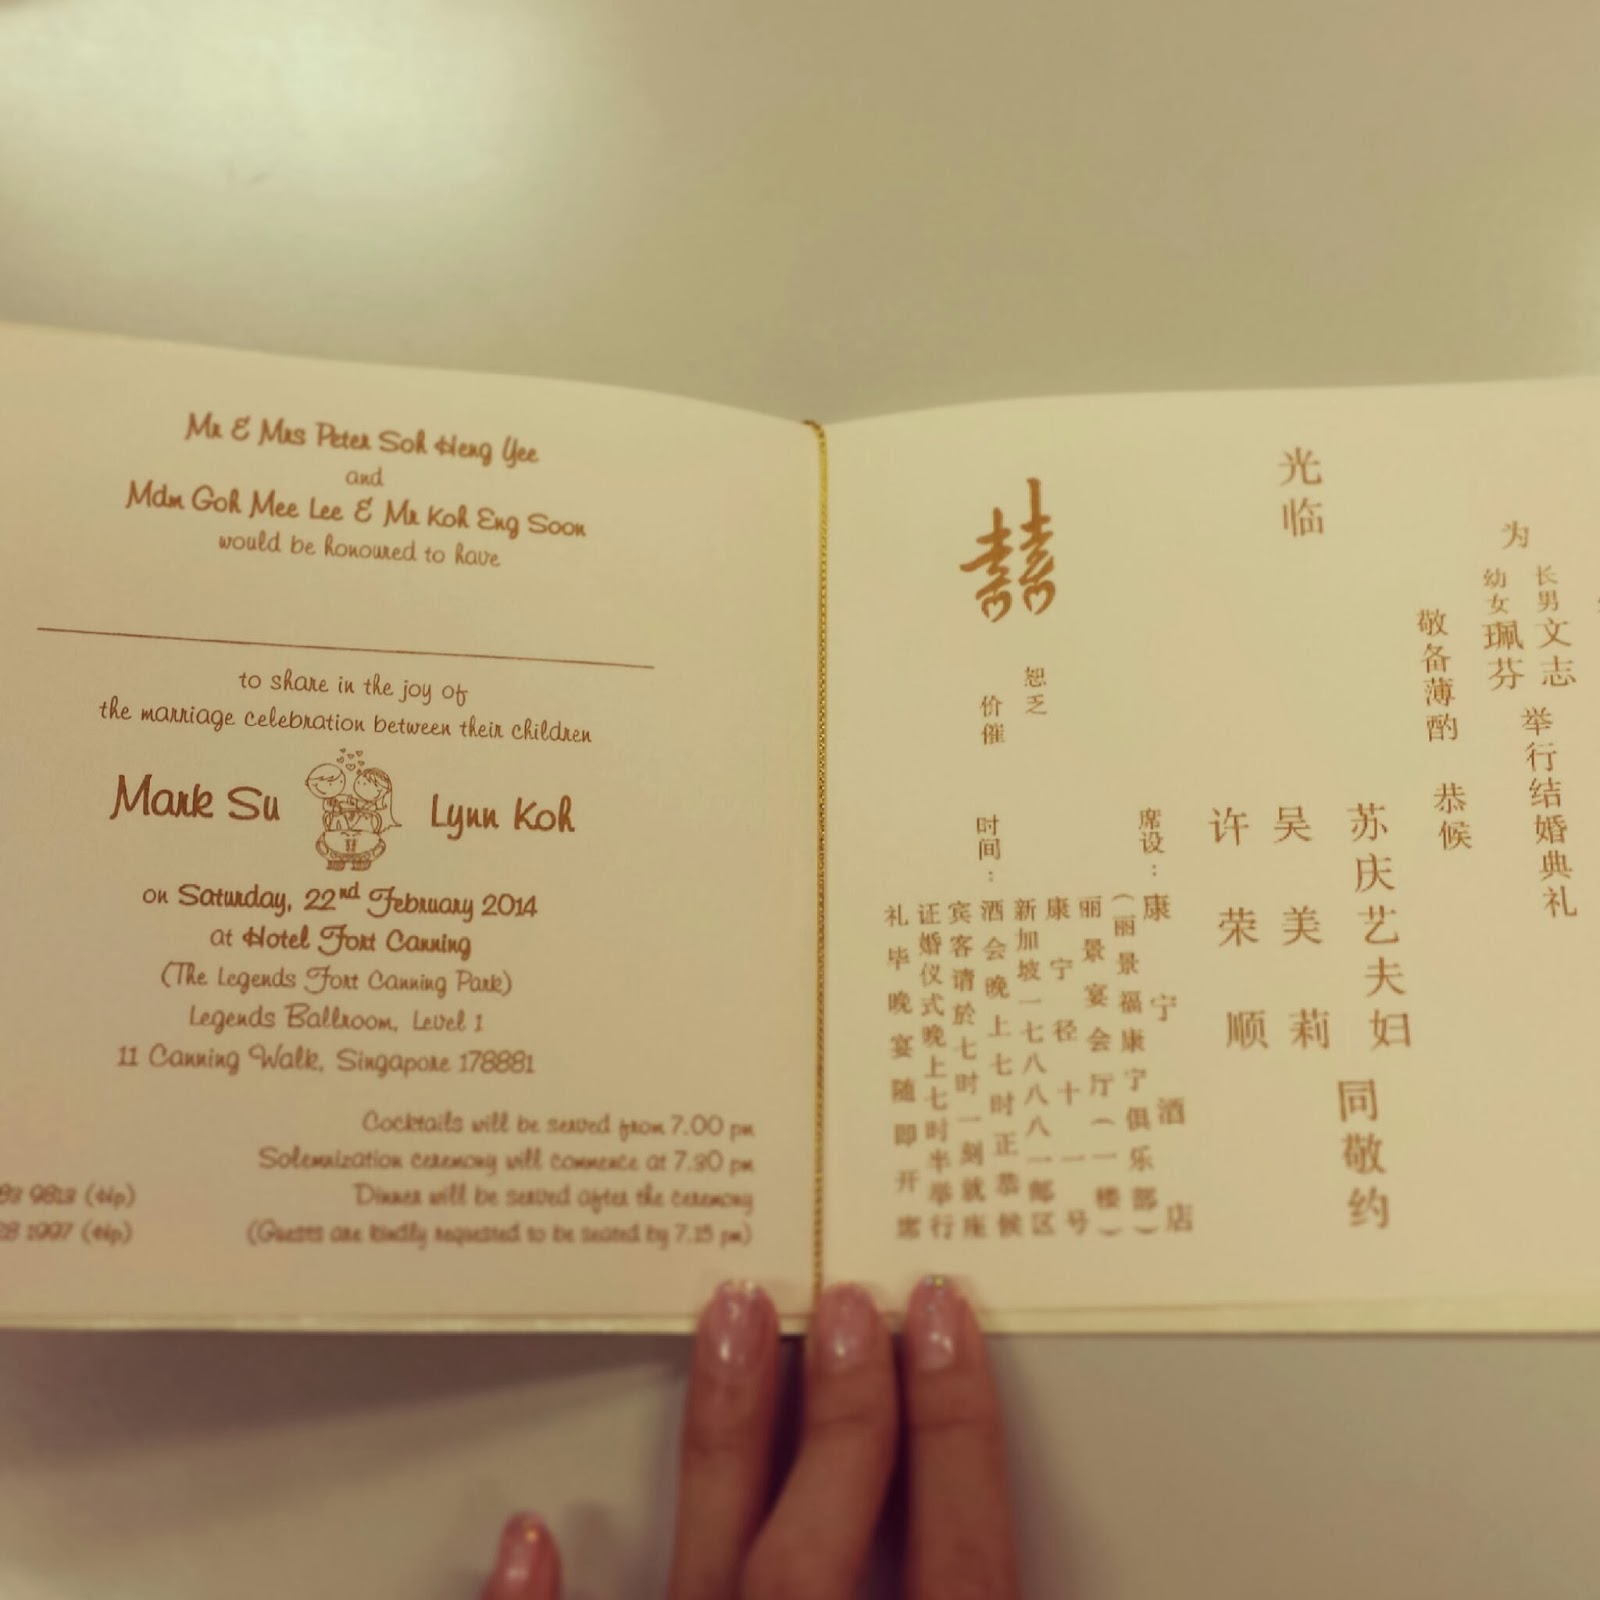 Mr & Mrs Peter Soh Heng Yee
and
Mdm Goh Mee Lee & Mr Koh Eng Soon
would be honoured to have
to share in the joy of
the marriage celebration between their children
Mark Su Lynn Koh
on Saturday, 22nd February 2014
at Hotel Fort Canning
(The Legends Fort Canning Park)
Legends Ballroom, Level 1
11 Canning Walk, Singapore 178881
Cocktails will be served from 7.00 pm
Solemnization ceremony will commence at 7.30 pm
Dinner will be served after the ceremony
(Guests are kindly requested to be seated by 7.15 pm)
9813 (Hp)
1997 (Hp)
为
长男文志
幼女珮芬
举行结婚典礼
敬备薄酌 恭候
光临
苏庆艺夫妇
吴美莉
许荣顺
同敬约
席设：康宁酒店
（丽景福康宁俱乐部）
丽景宴会厅（一楼）
康宁径十一号
新加坡一七八八八一邮区
时间：酒会晚上七时正恭候
宾客请於七时一刻就座
证婚仪式晚上七时半举行
礼毕晚宴随即开席
恕乏
价催
囍